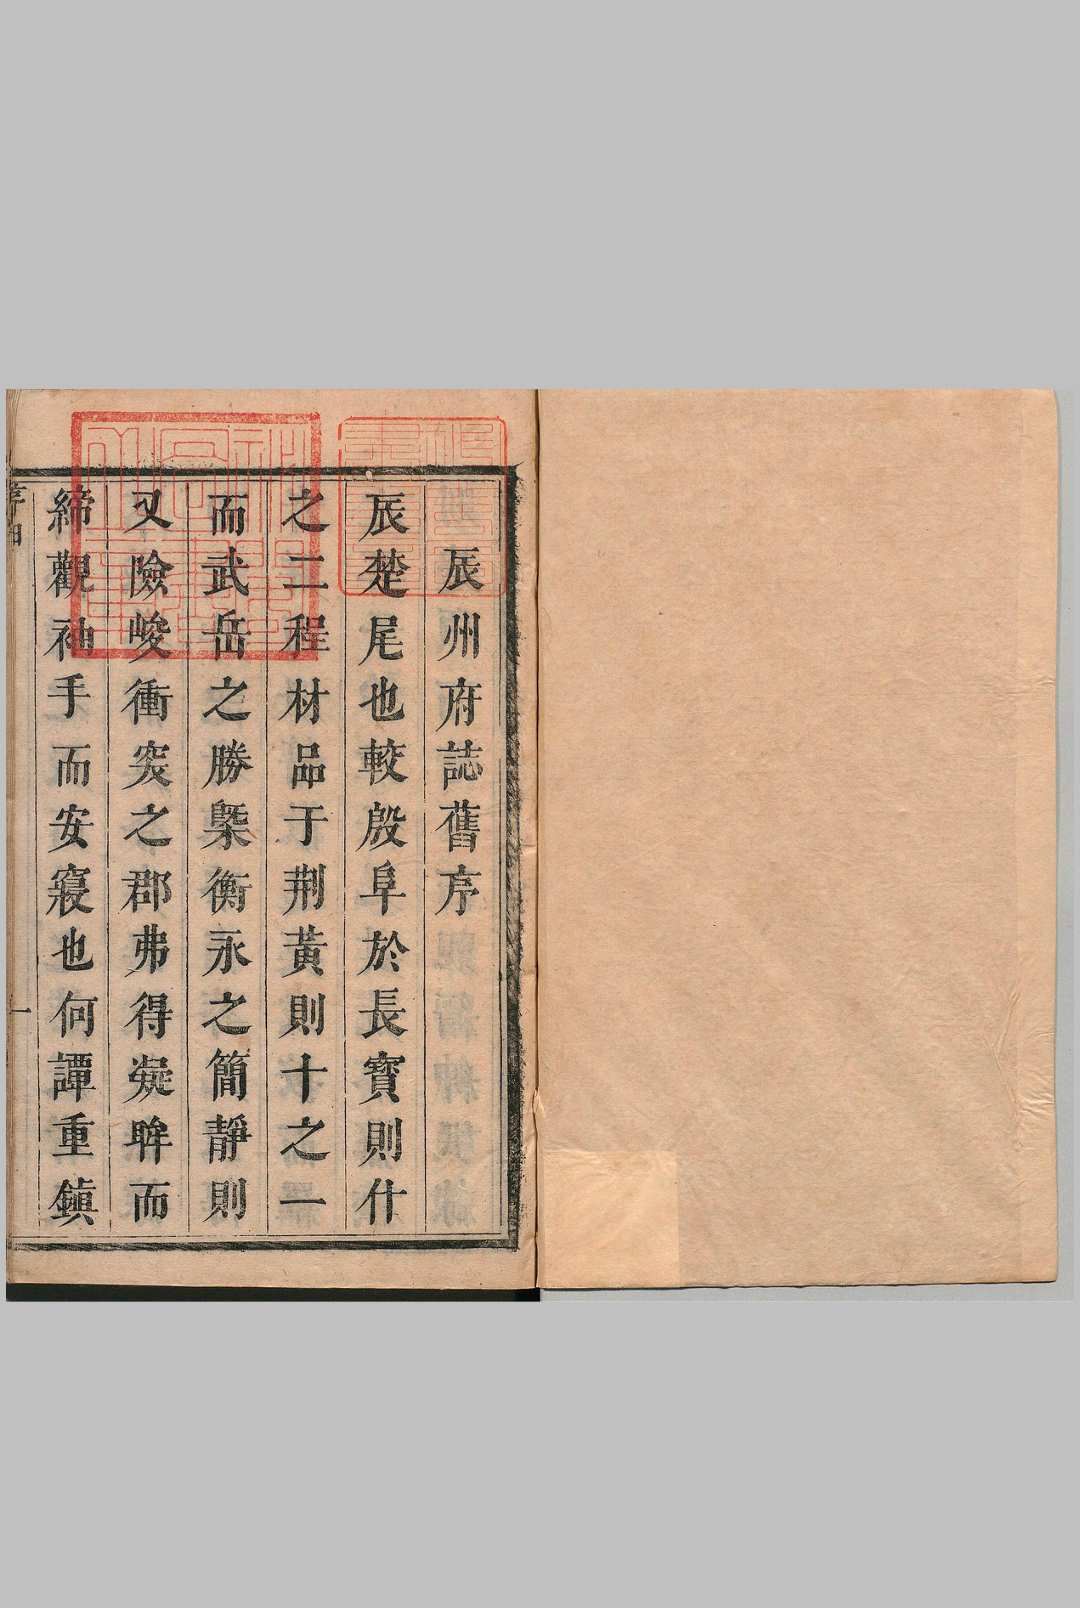 辰州府誌舊序
辰楚尾也較殷阜於長寳則什
之二程材品于荆黃則十之一
而武岳之勝槩衡永之簡靜則
又險峻衝突之郡弗得凝眸而
締觀袖手而安寢也何譚重鎮
一